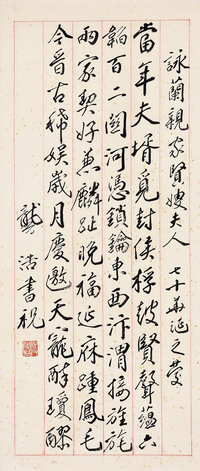 詠蘭親家賢嫂夫人 七十華誕之慶
當年夫壻覓封侯桴鼓賢聲蘊六
韜百二關河憑鎖鑰東西汴渭接旌旄
兩家契好兼麟趾晚福延庥踵鳳毛
今晉古稀娛歲月慶邀天寵醉瓊醪
龔浩書祝